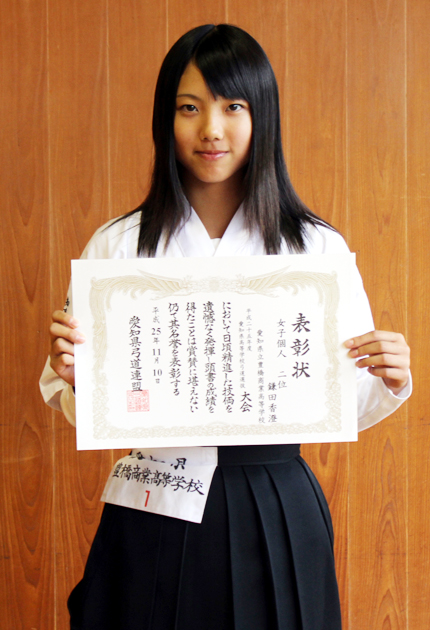 表彰状
女子個人　二位
鎌田香澄
愛知県立豊橋商業高等学校
平成二十五年度
愛知県高等学校弓道選抜
大会
において日頃精進した技価を
遺憾なく発揮し頭書の成績を
得たことは賞賛に堪えない
仍て其名誉を表彰する
平成25年11月10日
愛知県弓道連盟
豊橋商業高等学校
1